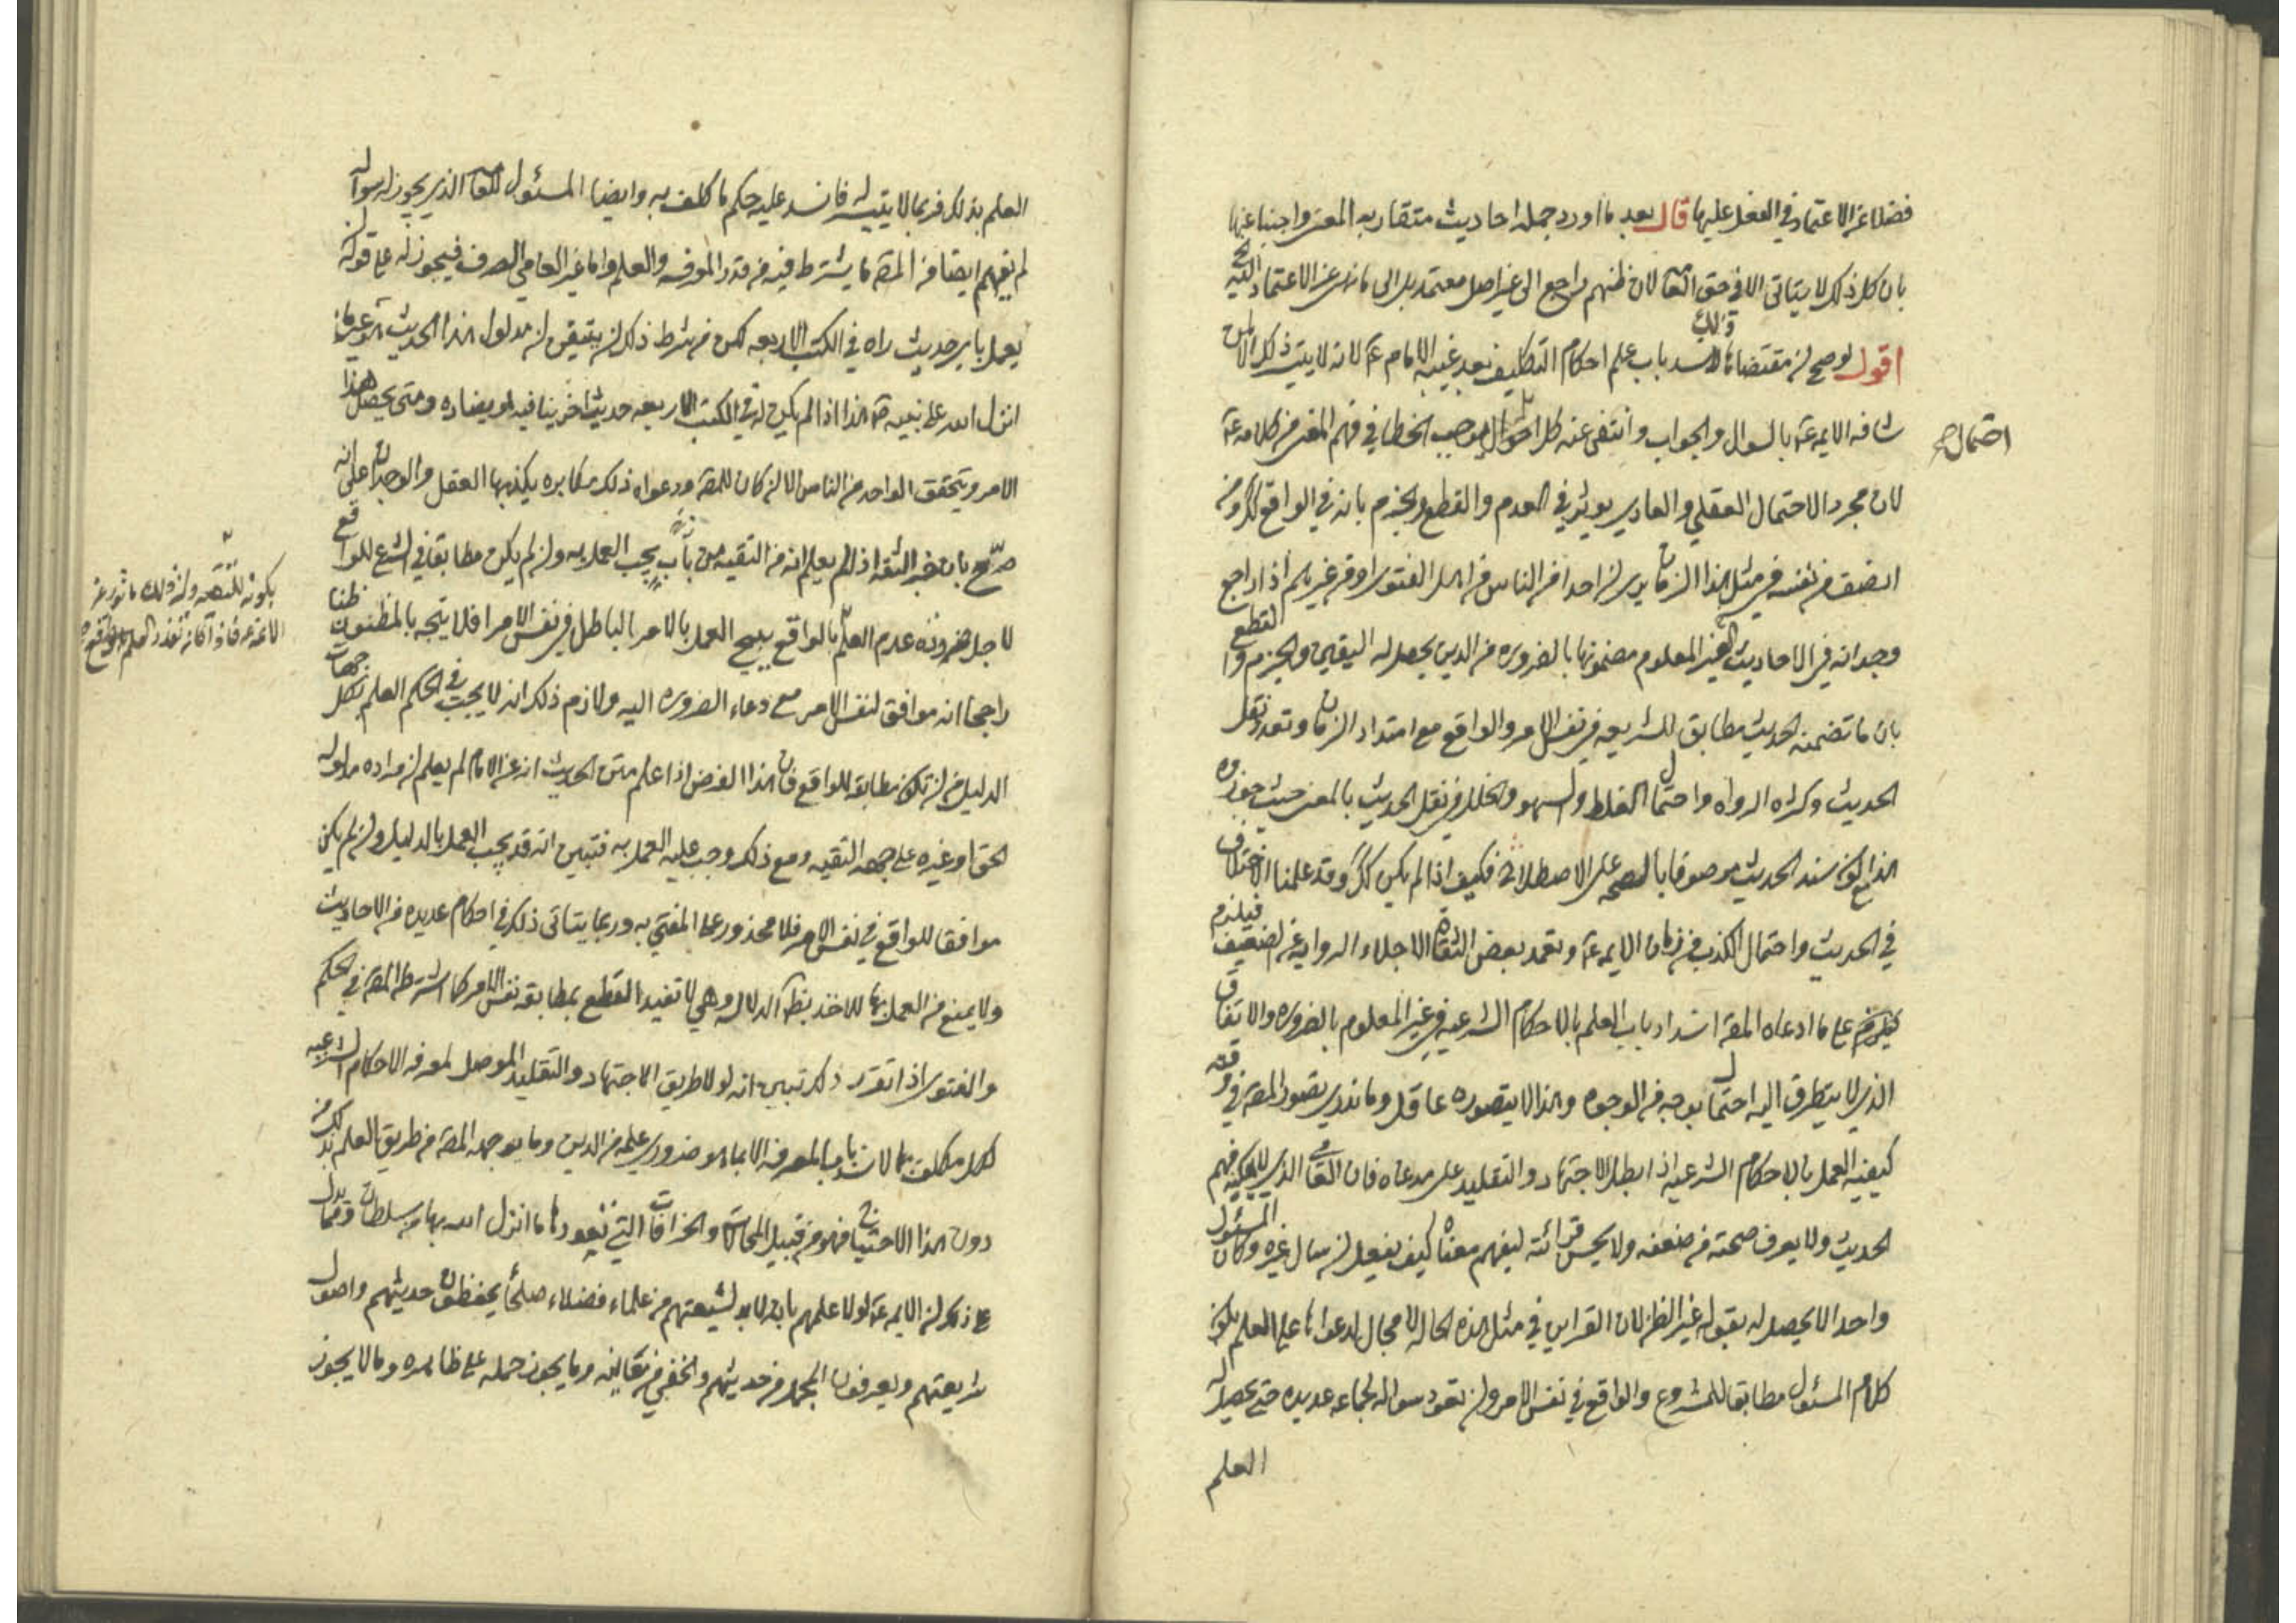 فضلا عن الاعتماد في العمل عليها قال بعد ما اورد جمله احاديث متقاربه المعنى واجبنا عنها
بان كل ذلك لا يتاتى الا في حق العامه لان ظنهم راجع الى غير اصل معتمد بل الى ما نهى عن الاعتماد عليه
اقول لو صح ان مقتضاها ذلك لانسد باب علم احكام التكليف بعد غيبه الامام ع لانه لا يتيسر ذلك الا لمن
شافه الايمه ع بالسوال والجواب وانتفى عنه كل احتمال يوجب الخطا في فهم المعنى من كلامه ع
احتمال صح
لان مجرد الاحتمال العقلي والعادي يوثر في العدم والقطع والجزم بانه في الواقع كك ومن
انصف من نفسه في مثل هذا الزمان يرى ان احدا من الناس من اهل الفتوى او من غيرهم اذا راجع
وجدانه في الاحاديث الغير المعلوم مضمونها بالضروره من الدين يحصل له اليقين والجزم والقطع
بان ما تضمنه الحديث مطابق للشريعه في نفس الامر والواقع مع امتداد الزمان وتعدد نقل
الحديث وكثره الرواه واحتمال الغلط والسهو والخلل في نقل الحديث بالمعنى حيث جوزوه
هذا مع كون سند الحديث موصوفا بالصحه على الاصطلاح فكيف اذا لم يكن كك وقد علمنا الاختلاف
في الحديث واحتمال الكذب في زمان الايمه ع وتعمد بعض الثقاه الاجلاء الروايه عن الضعيف فيلزم
على ما ادعاه المص انسداد باب العلم بالاحكام الشرعيه في غير المعلوم بالضروره والاتفاق
الذي لا يتطرق اليه احتمال بوجه من الوجوه وهذا لا يتصوره عاقل وما ندري تصور المص في وقته
كيفيه العمل بالاحكام الشرعيه اذا ابطل الاجتهاد والتقليد على مدعاه فان العامي الذي لا يمكنه فهم
الحديث ولا يعرف صحته من ضعفه ولا يحسن قرائته ليفهم معناه كيف يفعل ان سال غيره وكان المسئول
واحدا لا يحصل له بقوله غير الظن لان القراين في مثل هذه الحاله لا مجال لادعواها على العلم بكون
كلام المسئول مطابقا للمشروع والواقع في نفس الامر وان تعود سواله لجماعه عديده حتى يحصل له
العلم
العلم بذلك فربما لا يتيسر له فانسد عليه حكم ما كلف به وايضا المسئول للعامه الذي يجوز له سواله
لم يفهم ايضا من المص ما يشترط فيه من قدر المعرفه والعلم واما غير العامي الصرف فيجوز له على قوله ان
يعمل باي حديث راه في الكتب الاربعه لكن من شرط ذلك ان يتيقن ان مدلول هذا الحديث هو عين ما
انزل الله على نبيه ص هذا اذا لم يكن في الكتب الاربعه حديث اخر ينافيه او يضاده ومتى يحصل هذا
الامر ويتحقق لواحد من الناس الا ان كان للمص ودعواه ذلك مكابره يكذبها العقل والوجدان على انه
صرّح بان خبر الثقه اذا لم يعلم انه من التقيه من باب يجب العمل به وان لم يكن مطابقا في الشرع للواقع
لاجل ضروره عدم العلم بالواقع يبيح العمل بالامر الباطل في نفس الامر افلا يتجه بالمظنون ظنا
راجحا انه موافق لنفس الامر مع دعاء الضروره اليه ولازم ذلك انه لا يجب في الحكم العلم بكل جهات
الدليل من ان تكون مطابقه للواقع فان هذا الفرض اذا علم متن الحديث انه عن الامام لم يعلم ان مراده مدلوله
الحق او غيره على جهه التقيه ومع ذلك وجب عليه العمل به فتبين انه قد يجب العمل بالدليل وان لم يكن
موافقا للواقع في نفس الامر فلا محذور على المفتي به وربما يتاتى ذلك في احكام عديده من الاحاديث
ولا يمنع من العمل بها للاخذ بظاهر الدلاله وهي لا تفيد القطع بمطابقه نفس الامر كما اشترط المص في الحكم
والفتوى اذا تقرر ذلك تبين انه لولا طريق الاجتهاد والتقليد الموصل لمعرفه الاحكام الشرعيه
لكل مكلف بها لانسد باب المعرفه وما يوجهه المص من طريق العلم بذلك من
دون هذا الاحتياج فهو من قبيل المحالات والخرافات التي تعودها ما انزل الله بها من سلطان ومما يدل
على ذلك ان الايمه ع لولا علمهم بانه لابد لشيعتهم من علماء فضلاء صلحاء يحفظون حديثهم واصول
شريعتهم ويعرفون المجمل من حديثهم والخفي من معانيه وما يجوز حمله على ظاهره وما لا يجوز